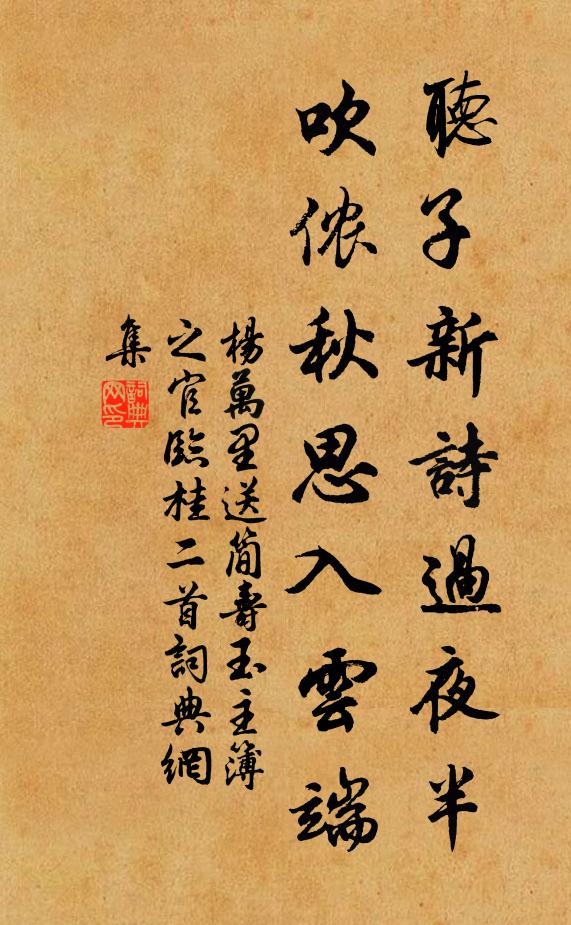 聽子新詩過夜半
吹儂秋思入雲端
楊萬里送簡壽玉主簿
之官臨桂二首詞典網
集
詞典網印